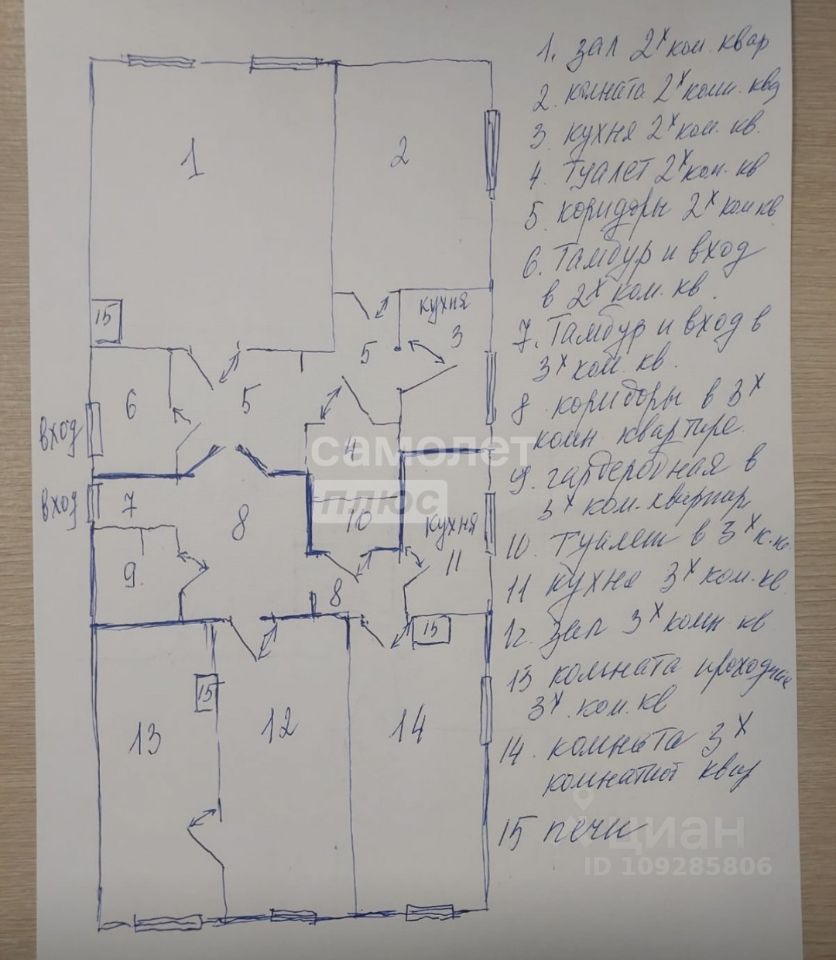 1. зал 2х ком. квар
2. комната 2х комн. квд
3 кухня 2х ком. кв.
4. Туалет 2х ком. кв
5 коридоры 2х ком кв
6. Тамбур и вход
в 2х ком. кв.
7. Тамбур и вход в
3х ком. кв.
8. коридоры в 3х
комн. квартире.
9. гардеробная в
3х ком. квартир
10. Туалет в 3х к.кв
11 кухня 3х ком. кв
12. зал 3х комн. кв
13 комната проходная
3х. ком. кв
14. комната 3х
комнатной квар
15 печи
1
2
15
кухня
3
5
6
5
вход
4
самолет
плюс
вход
7
8
10
кухня
11
9
8
15
15
13
12
14
циан
ID 109285806